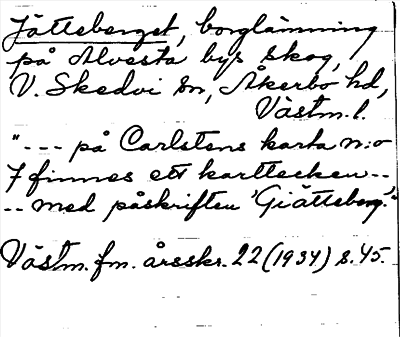 Jätteberget, borglämning
på Alvesta bys skog,
V. Skedvi sn, Åkerbo hd,
Västm. l.
"--- på Carlstens karta n:o
7 finnes ett karttecken--
-- med påskriften 'Giätteberg'."
Västm. fm. årsskr. 22 (1934) s. 45.